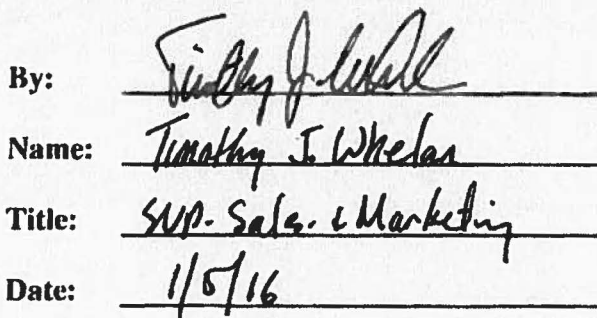 By: Timothy J. Whelan
Name: Timothy J. Whelan
Title: SVP. Sales. & Marketing
Date: 1/5/16